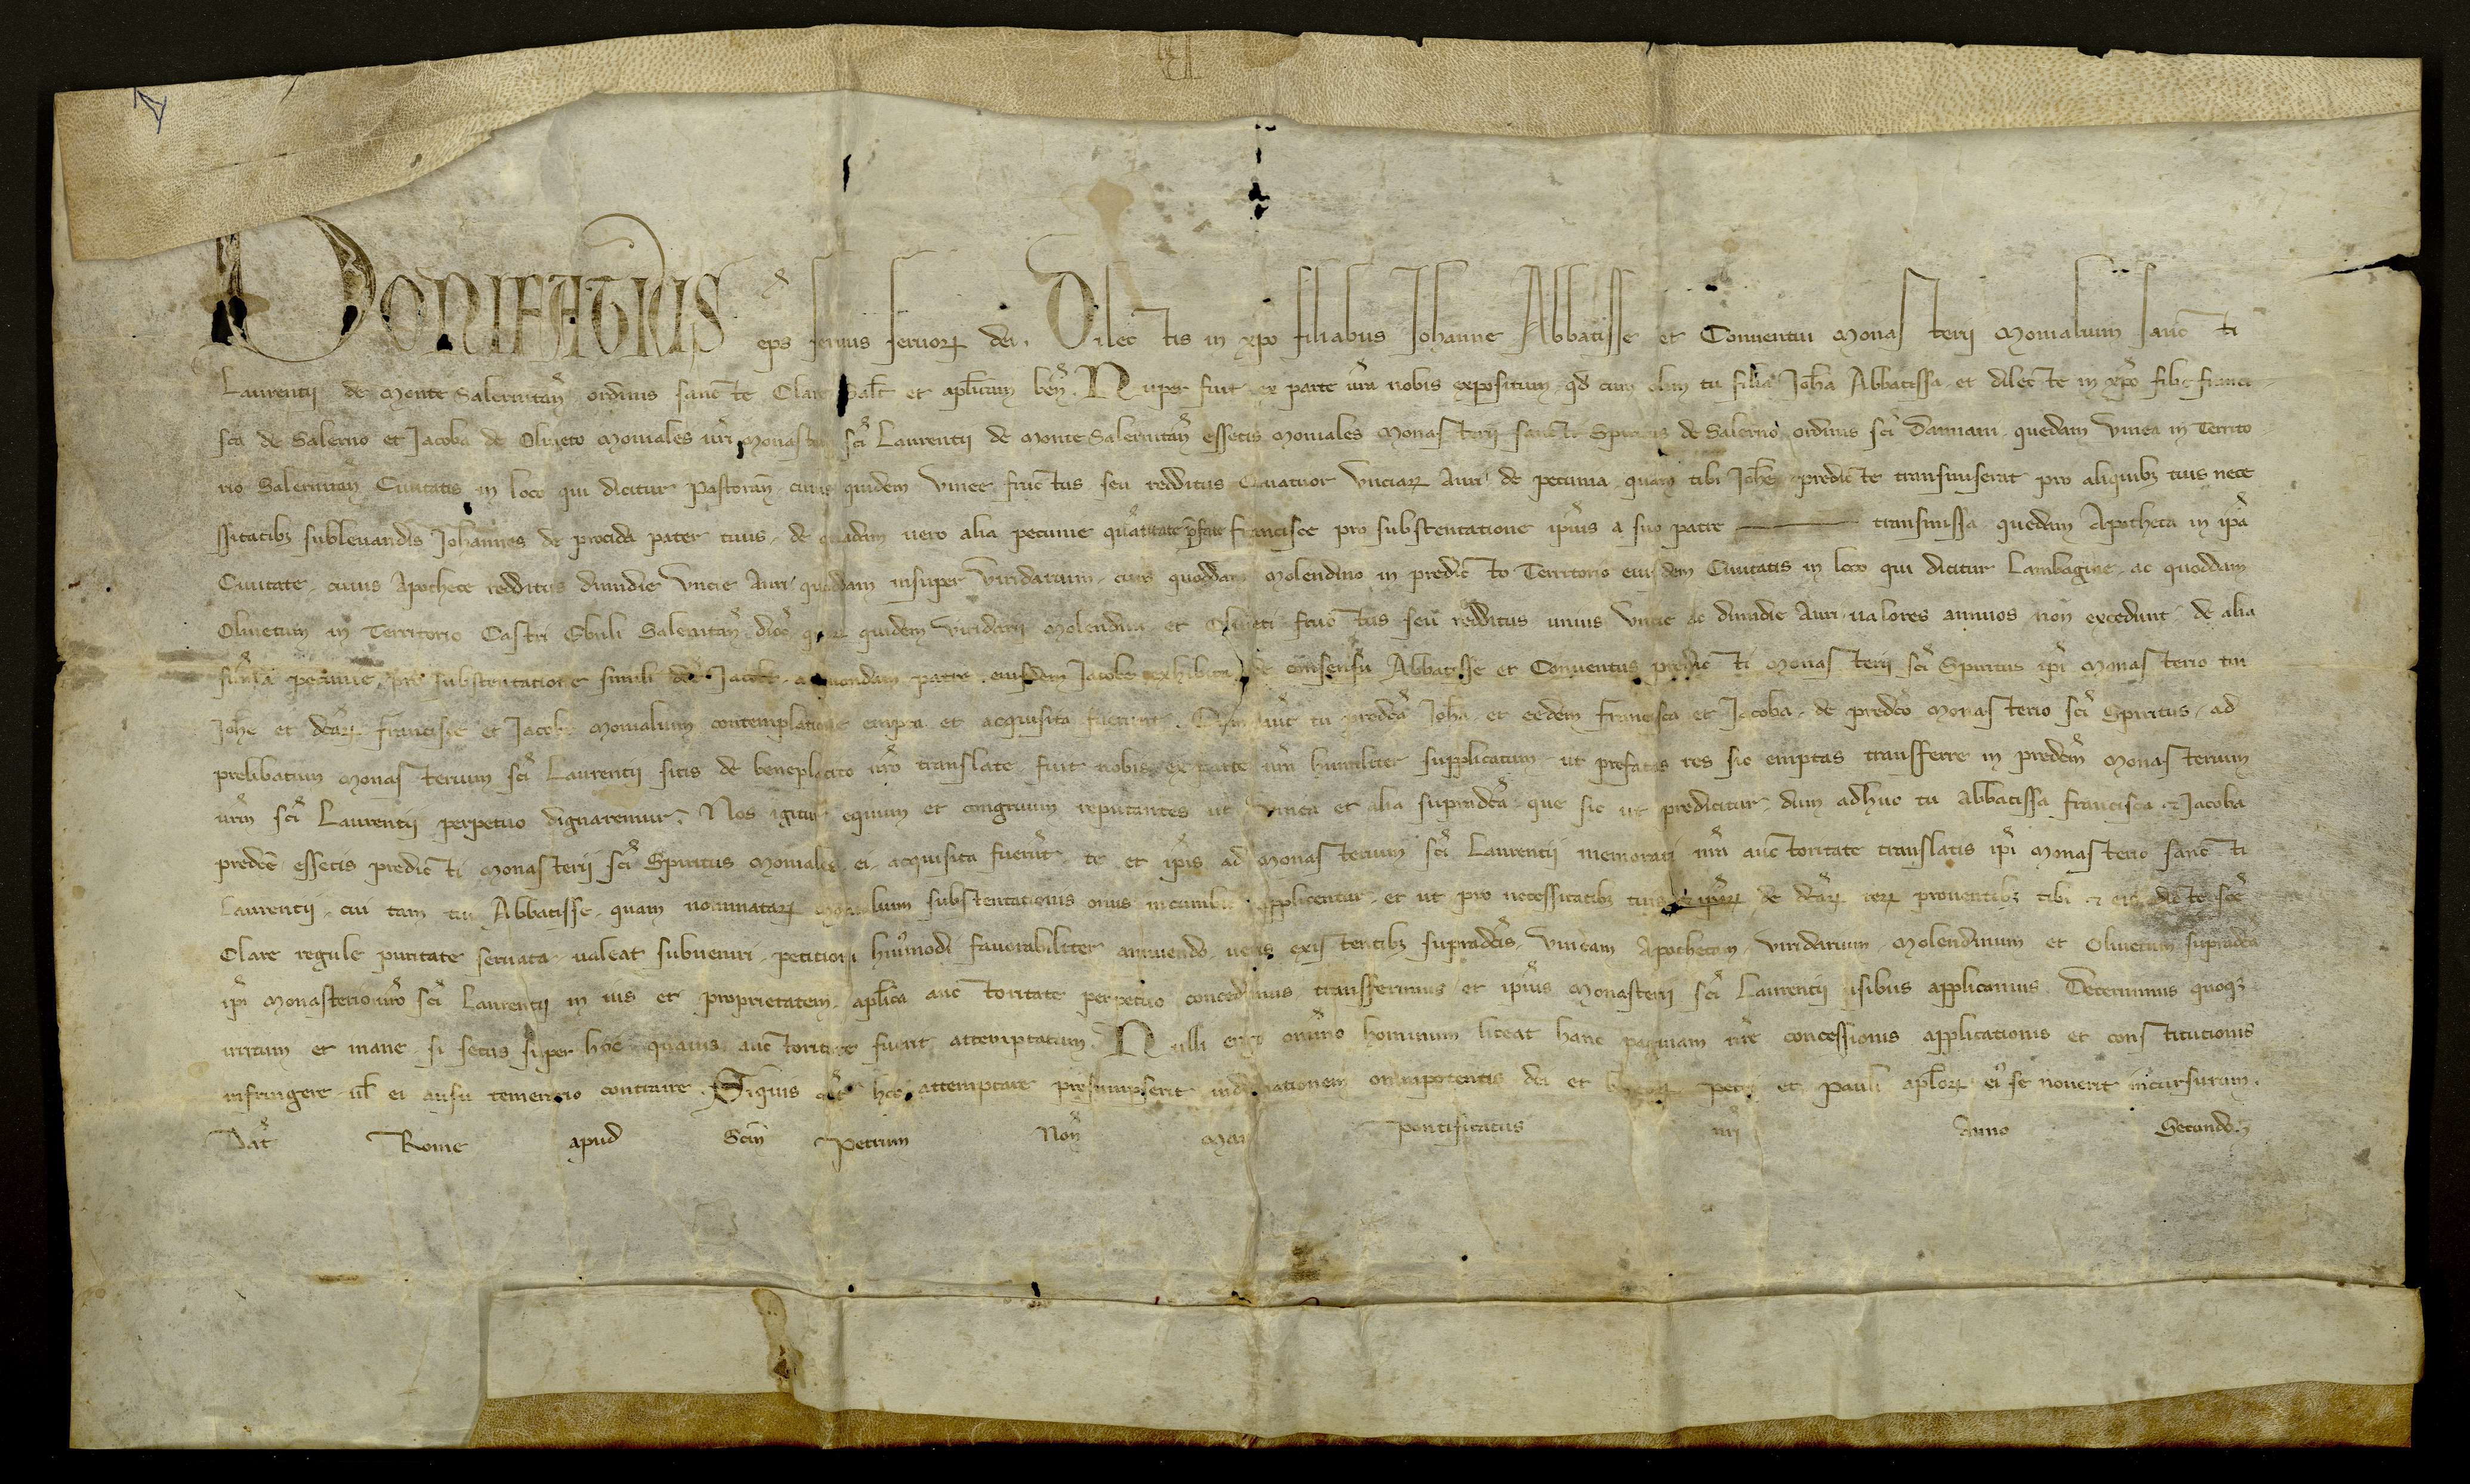 BONIFATIUS eps servus servorꝝ dei. Dilectis in xp̄o filiabus Johanne Abbatisse et Conventui Monasterii Monialium Sancti
Laurentii de Monte Salernitan̄ ordinis sancte Clare Salt̄ et aplicam ben̄. Nuper fuit ex parte vr̄a nobis expositum, qd̄ cum olim tu filia Joh̄a Abbatissa, et dilecte in xp̄o filie franci
sca de Salerno et Jacoba de Oliveto Moniales vr̄i Monasterii sc̄i Laurentii de Monte Salernitan̄ essetis Moniales Monasterii sancti Spiritus de Salerno ordinis sc̄i Damiani, quedam vinea in Territo
rio Salernitan̄ Civitatis in loco qui dicitur Pastoran̄, cuius quidem vinee fructus seu redditus Quatuor Unciarꝝ Auri de pecunia quam tibi Joh̄e predicte transmiserat pro aliquibꝫ tuis nece
ssitatibꝫ sublevandis Johannes de procida pater tuus, de quadam vero alia pecunie quātitate p̄fate francisce pro substentatione ip̄ius a suo patre transmissa quedam Apotheca in ip̄a
Civitate, cuius Apothece redditus dimidie Uncie Auri quoddam insuper viridarium, cum quoddam Molendino in predicto Territorio eiusdem Civitatis in loco qui dicitur Lambagine, ac quoddam
Olivetum in Territorio Castri Ebuli Salernitan̄ dioc̄ quidem viridarii Molendini et Oliveti fructus seu redditus unius Uncie ac dimidie Auri valores annuos non excedunt de alia
sum̄a pecunie, pro substentatione simili dc̄e Jacobe, a quondam patre eiusdem Jacobe exhibita, de consensu Abbatisse et Conventus predicti Monasterii sc̄i Spiritus ip̄i Monasterio tui
Joh̄e et dc̄arꝝ francisce et Jacobe Monialium contemplatione empta et acquisita fuerunt. Cum aūt tu predc̄a Joh̄a, et eedem francisca et Jacoba, de predc̄o Monasterio sc̄i Spiritus, ad
prelibatum Monasterium sc̄i Laurentii sitis de beneplacito nr̄o translate, fuit nobis ex parte vr̄a humiliter supplicatum ut prefatas res sic emptas transferre in predc̄m Monasterium
vr̄m sc̄i Laurentii perpetuo dignaremur. Nos igitur equum et congruum reputantes ut vinea et alia supradc̄a que sic ut predicitur, dum adhuc tu Abbatissa francisca et Jacoba
predc̄e essetis predicti Monasterii sc̄i Spiritus Moniales ei acquisita fuerūt, te et ip̄is ad Monasterium sc̄i Laurentii memorati nr̄a auctoritate translatis ip̄i Monasterio sancti
Laurentii, cui tam tui Abbatisse, quam nominatarꝝ Monialium substentationis onus incumbit applicentur, et ut pro necessitatibꝫ tuis et ip̄arꝝ de dc̄arꝝ rerꝝ proventibꝫ tibi et eis dicte sc̄e
Clare regule puritate servata, valeat subveniri, petitioni hmōi favorabiliter annuendo veris existentibꝫ supradc̄is, vineam Apothecam, viridarium, Molendinum et Olivetum supradc̄a
ip̄i Monasterio vr̄o sc̄i Laurentii in ius et proprietatem, aplica auctoritate perpetuo concedimus transferimus et ip̄ius Monasterii sc̄i Laurentii usibus applicamus. Decernimus quoqꝫ
irritum et inane si secus super hoc quavis auctoritate fuerit attemptatum. Nulli ergo omnino hominum liceat hanc paginam nr̄e concessionis applicationis et constitutionis
infringere vl̄ ei ausu temerario contraire. Siquis aūt hoc attemptare presumpserit indignationem omnipotentis dei et beatorꝝ Petri et Pauli aplorꝝ ei᷒ se noverit incursurum.
Dat̄ Rome apud Sc̄m Petrum Non̄ Mai Pontificatus nr̄i Anno Secundo.